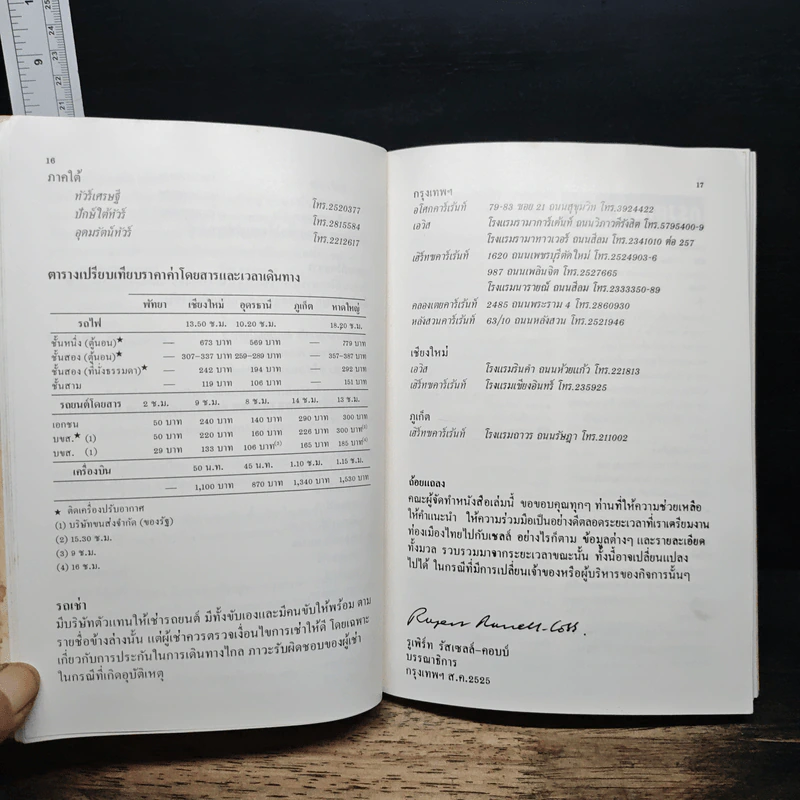 16
ภาคใต้
ทัวร์เศรษฐี โทร.2520377
ปักษ์ใต้ทัวร์ โทร.2815584
อุดมรัตน์ทัวร์ โทร.2212617
ตารางเปรียบเทียบราคาค่าโดยสารและเวลาเดินทาง
พัทยา เชียงใหม่ อุดรธานี ภูเก็ต หาดใหญ่
รถไฟ 13.50 ช.ม. 10.20 ช.ม. 18.20 ช.ม.
ชั้นหนึ่ง (ตู้นอน)★ — 673 บาท 569 บาท — 779 บาท
ชั้นสอง (ตู้นอน)★ — 307-337 บาท 259-289 บาท — 357-387 บาท
ชั้นสอง (ที่นั่งธรรมดา)★ — 242 บาท 194 บาท — 292 บาท
ชั้นสาม — 119 บาท 106 บาท — 151 บาท
รถยนต์โดยสาร 2 ช.ม. 9 ช.ม. 8 ช.ม. 14 ช.ม. 13 ช.ม.
เอกชน 50 บาท 240 บาท 140 บาท 290 บาท 300 บาท
บขส.★ (1) 50 บาท 220 บาท 160 บาท 226 บาท 300 บาท
บขส. (1) 29 บาท 133 บาท 106 บาท 165 บาท 185 บาท
เครื่องบิน 50 น.ท. 45 น.ท. 1.10 ช.ม. 1.15 ช.ม.
— 1,100 บาท 870 บาท 1,340 บาท 1,530 บาท
★ ติดเครื่องปรับอากาศ
(1) บริษัทขนส่งจำกัด (ของรัฐ)
(2) 15.30 ช.ม.
(3) 9 ช.ม.
(4) 16 ช.ม.
รถเช่า
มีบริษัทตัวแทนให้เช่ารถยนต์ มีทั้งขับเองและมีคนขับให้พร้อม ตาม
รายชื่อข้างล่างนั้น แต่ผู้เช่าควรตรวจเงื่อนไขการเช่าให้ดี โดยเฉพาะ
เกี่ยวกับการประกันในการเดินทางไกล ภาวะรับผิดชอบของผู้เช่า
ในกรณีที่เกิดอุบัติเหตุ
17
กรุงเทพฯ
อโศกคาร์เร้นท์ 79-83 ซอย 21 ถนนสุขุมวิท โทร.3924422
เอวิส โรงแรมรามาการ์เด้นท์ ถนนวิภาวดีรังสิต โทร.5795400-9
โรงแรมรามาทาวเวอร์ ถนนสีลม โทร.2341010 ต่อ 257
เฮิร์ทซคาร์เร้นท์ 1620 ถนนเพชรบุรีตัดใหม่ โทร.2524903-6
987 ถนนเพลินจิต โทร.2527665
โรงแรมนารายณ์ ถนนสีลม โทร.2333350-89
คลองเตยคาร์เร้นท์ 2485 ถนนพระราม 4 โทร.2860930
หลังสวนคาร์เร้นท์ 63/10 ถนนหลังสวน โทร.2521946
เชียงใหม่
เอวิส โรงแรมรินคำ ถนนห้วยแก้ว โทร.221813
เฮิร์ทซคาร์เร้นท์ โรงแรมเชียงอินทร์ โทร.235925
ภูเก็ต
เฮิร์ทซคาร์เร้นท์ โรงแรมถาวร ถนนรัษฎา โทร.211002
ถ้อยแถลง
คณะผู้จัดทำหนังสือเล่มนี้ ขอขอบคุณทุกๆ ท่านที่ให้ความช่วยเหลือ
ให้คำแนะนำ ให้ความร่วมมือเป็นอย่างดีตลอดระยะเวลาที่เราเตรียมงาน
ท่องเมืองไทยไปกับเชลล์ อย่างไรก็ตาม ข้อมูลต่างๆ และรายละเอียด
ทั้งมวล รวบรวมมาจากระยะเวลาขณะนั้น ทั้งนี้อาจเปลี่ยนแปลง
ไปได้ ในกรณีที่มีการเปลี่ยนเจ้าของหรือผู้บริหารของกิจการนั้นๆ
รูเพิร์ท รัสเซลล์-คอบบ์
บรรณาธิการ
กรุงเทพฯ ส.ค.2525
9
25
24
23
22
21